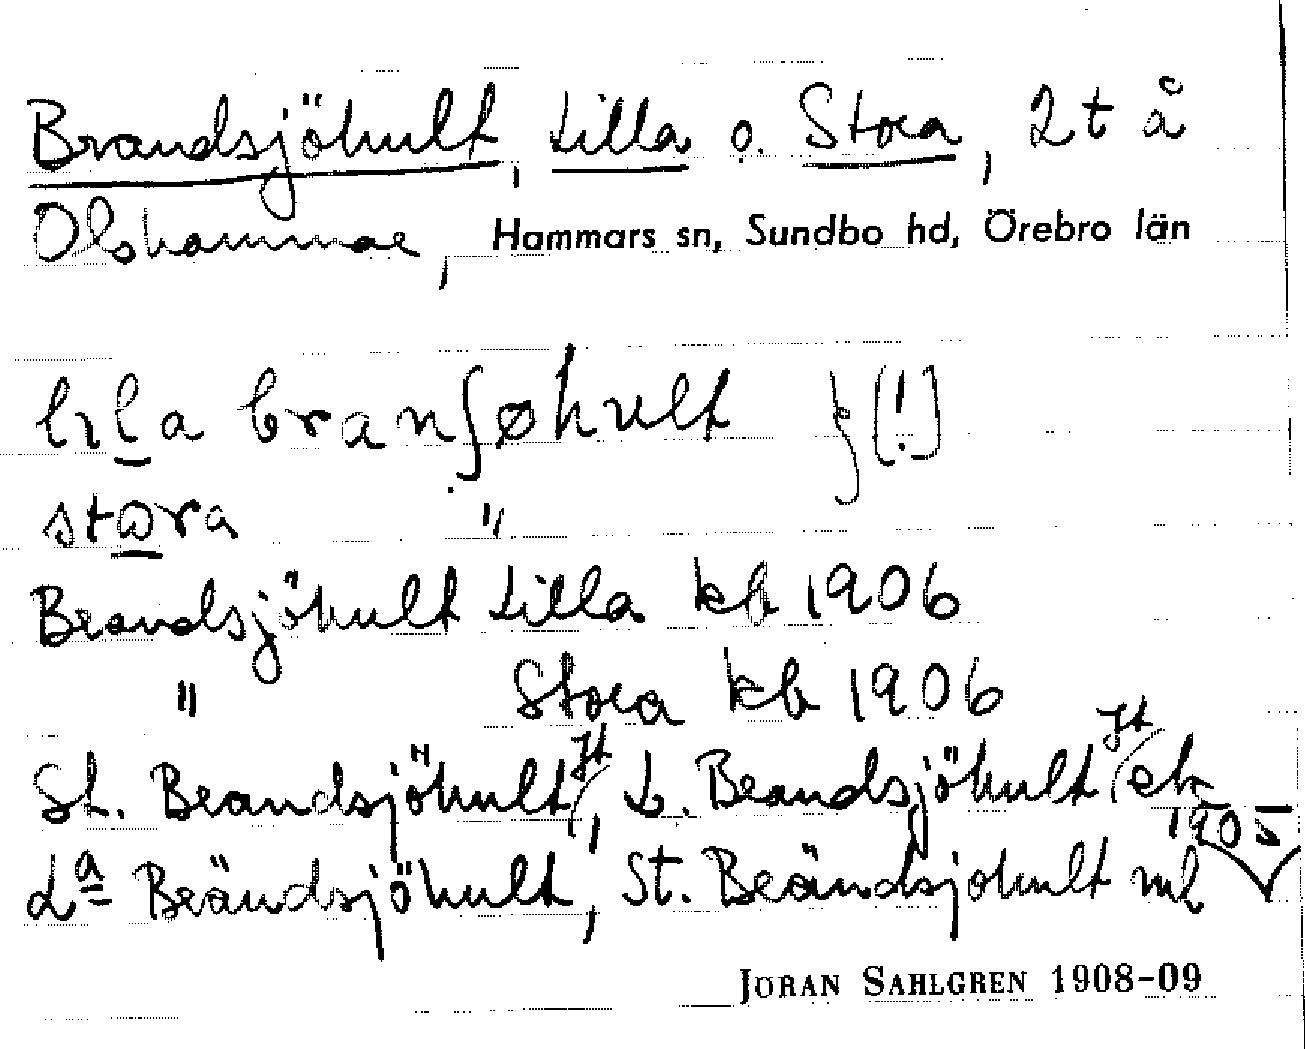 Brandsjöhult, Lilla o. Stora, 2 t å
Olshammar, Hammars sn, Sundbo hd, Örebro län
lıla branʃøhult } [!]
stɷra "
Brandsjöhult Lilla kb 1906
" Stora kb 1906
St. Brandsjöhult Jt, L. Brandsjöhult Jt ek 1905
La Brändsjöhult, St. Brändsjohult ml
JÖRAN SAHLGREN 1908-09